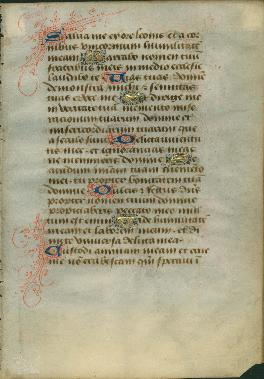 Salva me ex ore leonis et a cor
nibus unicornium humilitatem
meam Narrabo nomen tuum
fratribus meis in medio ecclesie
laudabo te Vias tuas domine
demonstra michi et semitas
tuas edoce me Dirige me
in veritate tua
miserationum tuarum domine et
misericordiarum tuarum que
a seculo sunt Delicta iuventu
tis mee et ignorancias meas
ne memineris domine
dum mam tuam memento
mei tu propter bonitatem tuam
domine Dulcis et rectus
propter nomen tuum domine
propiciaberis peccato meo mul
tum est enim Vide humilitatem
meam et laborem meum et di
mitte universa delicta mea
Custodi animam meam et erue
me non erubescam quoniam speravi i